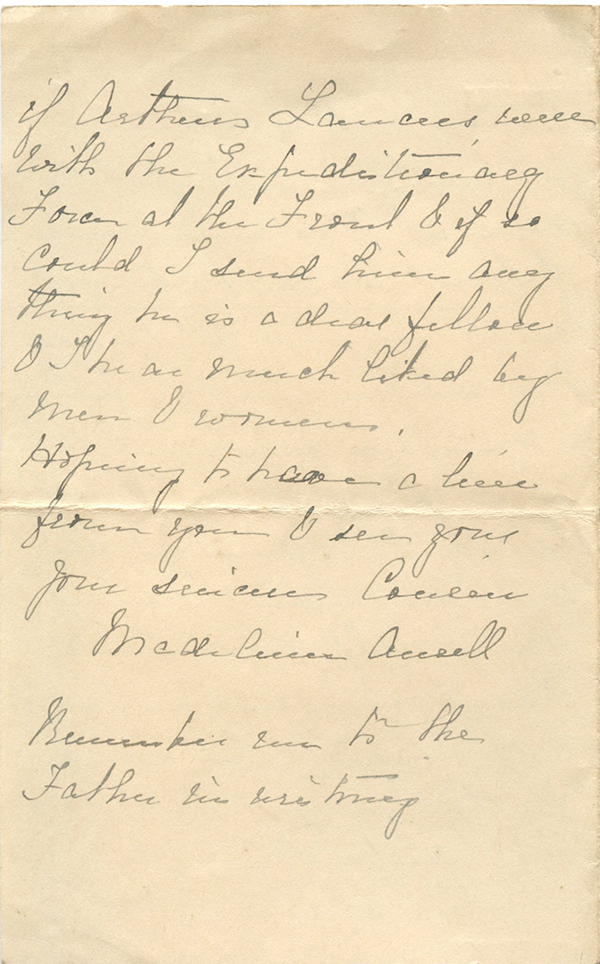 if Arthurs Lancers were
with the Expeditionary
Force at the Front & if so
could I send him any
thing he is a dear fellow
& I hear much liked by
men & women.
Hoping to have a line
from you & see you
your sincere Cousin
Madeline Ansell
Remember me to the
Father in writing